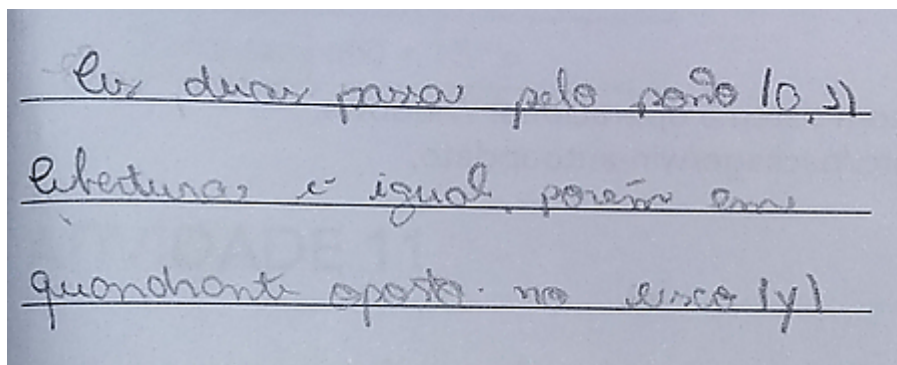 As duas passa pelo ponto (0,1)
Abertura, é igual, porém em
quandrante oposto. no eixo (y)
ATIVIDADE 11